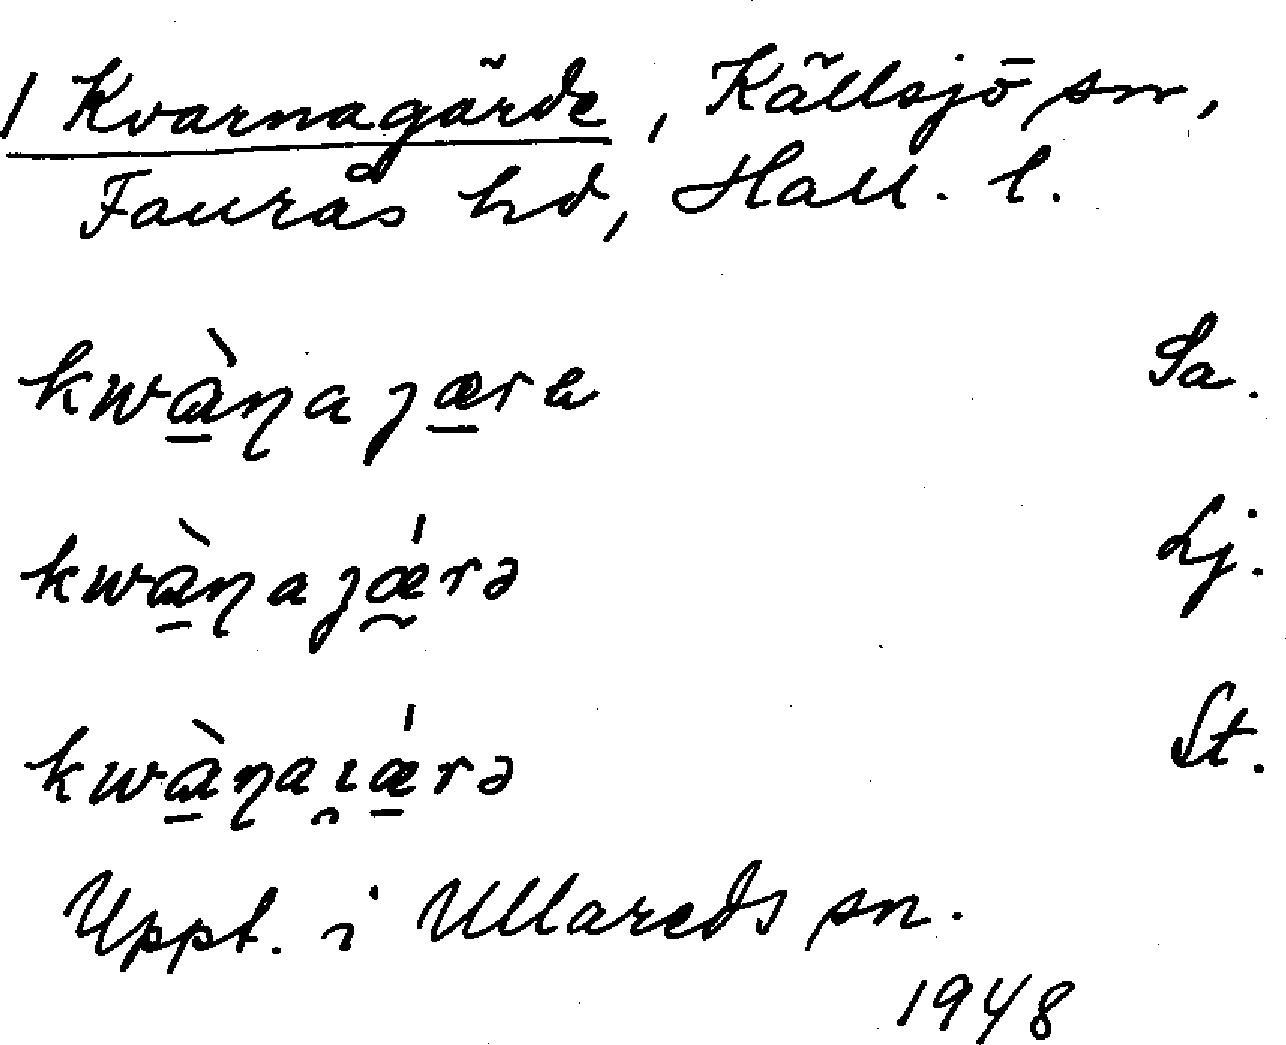 1 Kvarnagärde, Källsjö sn,
Faurås hd, Hall. l.
kwὰ̱ɳaȷæ̱rɐ Sa.
kwὰ̱ɳaȷǽ̰rə Lj.
kwὰ̱ɳaı̯ǽ̱rə St.
Uppt. i Ullareds sn.
1948